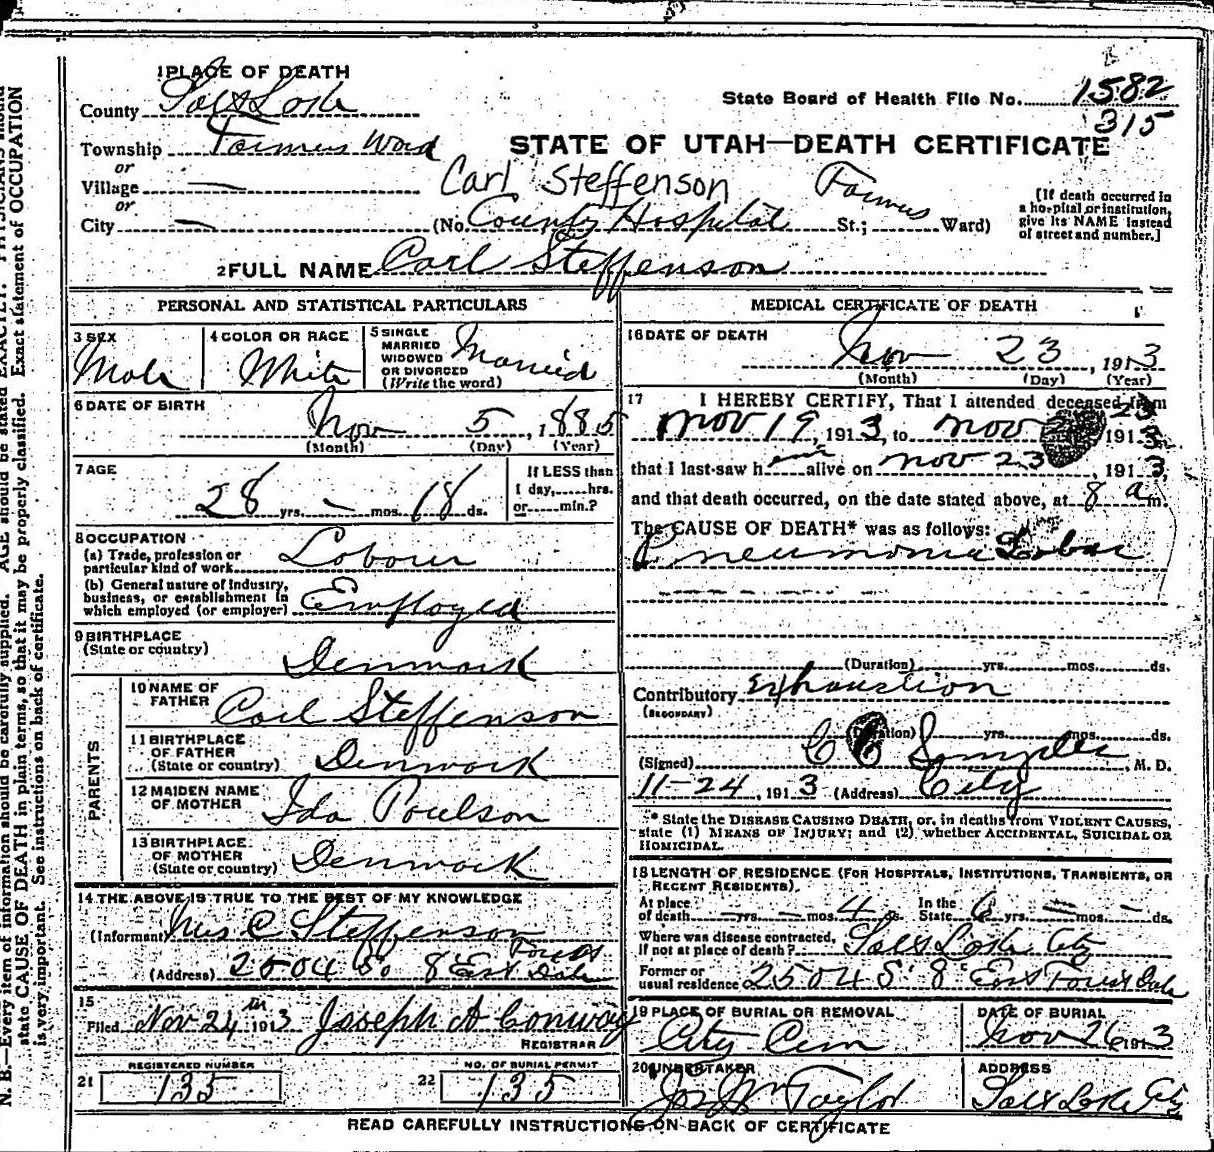 1 PLACE OF DEATH
County Salt Lake
State Board of Health File No. 1582
315
Township Farmers Ward
STATE OF UTAH—DEATH CERTIFICATE
or
Village —
Carl Steffenson
or
City — (No. County Hospital St.; Farmers Ward)
[If death occurred in
a hospital or institution,
give its NAME instead
of street and number.]
2 FULL NAME Carl Steffenson
PERSONAL AND STATISTICAL PARTICULARS
3 SEX
Male
4 COLOR OR RACE
White
5 SINGLE
MARRIED
WIDOWED
OR DIVORCED
(Write the word)
Married
6 DATE OF BIRTH
Nov 5, 1885
(Month) (Day) (Year)
7 AGE
28 yrs. — mos. 18 ds.
If LESS than
1 day,.....hrs.
or.....min.?
8 OCCUPATION
(a) Trade, profession or
particular kind of work Labour
(b) General nature of Industry,
business, or establishment in
which employed (or employer) Employed
9 BIRTHPLACE
(State or country)
Denmark
PARENTS
10 NAME OF
FATHER
Carl Steffenson
11 BIRTHPLACE
OF FATHER
(State or country) Denmark
12 MAIDEN NAME
OF MOTHER
Ida Poulson
13 BIRTHPLACE
OF MOTHER
(State or country) Denmark
14 THE ABOVE IS TRUE TO THE BEST OF MY KNOWLEDGE
(Informant) Mrs C Steffenson
(Address) 2504 So 8 East Forest Dale
15
Filed Nov 24th 1913 Joseph A Conway
REGISTRAR
REGISTERED NUMBER
21 135
NO. OF BURIAL PERMIT
22 135
MEDICAL CERTIFICATE OF DEATH
16 DATE OF DEATH
Nov 23, 1913
(Month) (Day) (Year)
17 I HEREBY CERTIFY, That I attended deceased from
23
Nov 19, 1913, to Nov 1913,
that I last saw him alive on Nov 23, 1913,
and that death occurred, on the date stated above, at 8 a m.
The CAUSE OF DEATH* was as follows:
Pneumonia Lobar
(Duration) yrs. mos. ds.
Contributory Exhaustion
(SECONDARY)
(Duration) yrs. mos. ds.
(Signed) C C Snyder, M. D.
11-24, 1913 (Address) City
* State the DISEASE CAUSING DEATH, or, in deaths from VIOLENT CAUSES,
state (1) MEANS OF INJURY; and (2) whether ACCIDENTAL, SUICIDAL OR
HOMICIDAL.
18 LENGTH OF RESIDENCE (FOR HOSPITALS, INSTITUTIONS, TRANSIENTS, OR
RECENT RESIDENTS).
At place
of death — yrs. — mos. 4 ds.
In the
State 6 yrs. — mos. — ds.
Where was disease contracted,
if not at place of death? Salt Lake City
Former or
usual residence 2504 S. 8 East Forest Dale
19 PLACE OF BURIAL OR REMOVAL
City Cem
DATE OF BURIAL
Nov 26 1913
20 UNDERTAKER
Jos Wm Taylor
ADDRESS
Salt Lake City
READ CAREFULLY INSTRUCTIONS ON BACK OF CERTIFICATE
N. B.—Every item of information should be carefully supplied. AGE should be stated EXACTLY. PHYSICIANS should
state CAUSE OF DEATH in plain terms, so that it may be properly classified. Exact statement of OCCUPATION
is very important. See instructions on back of certificate.